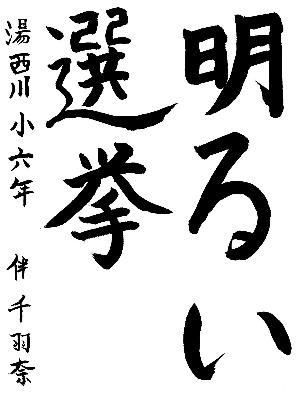 明るい
選挙
湯西川小六年 伴千羽奈